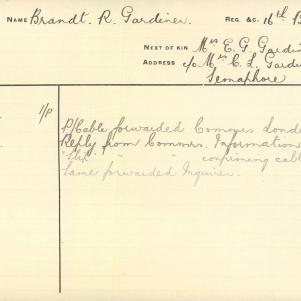 NAME Brandt. R. Gardiner. REG. &C. 16th B
NEXT OF KIN Mrs E. G. Gardin
ADDRESS c/o Mrs C. L. Gardi
Semaphore
1/P
P/Cable forwarded Commrs. Londo
Reply from Commrs. Information
"Slip" " " confirming cabl
Same forwarded Inquirer.